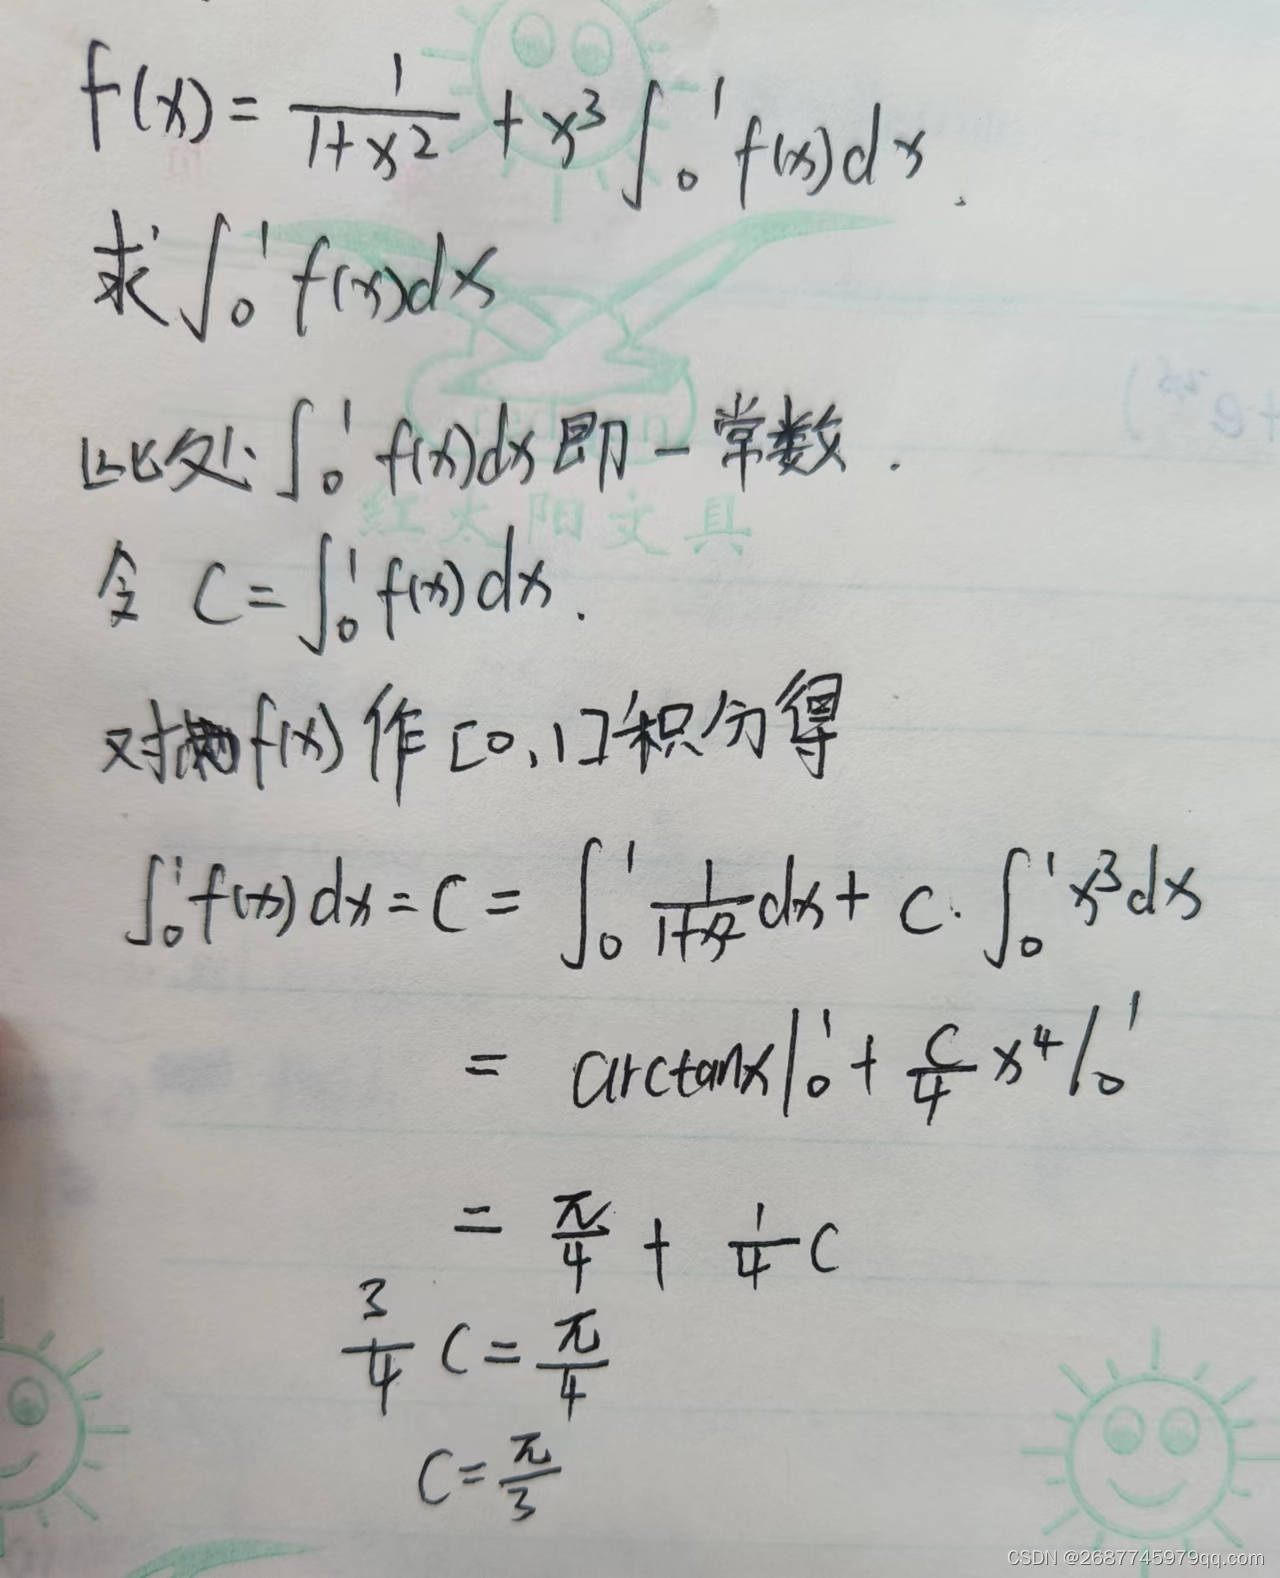 f(x) = \frac{1}{1+x^2} + x^3 \int_0^1 f(x)dx.
求 \int_0^1 f(x)dx
此处 \int_0^1 f(x)dx 即一常数.
红太阳文具
令 C = \int_0^1 f(x)dx.
对 f(x) 作 [0,1] 积分得
\int_0^1 f(x)dx = C = \int_0^1 \frac{1}{1+x^2}dx + C·\int_0^1 x^3dx
= arctanx|_0^1 + \frac{C}{4}x^4|_0^1
= \frac{π}{4} + \frac{1}{4}C
\frac{3}{4}C = \frac{π}{4}
C = \frac{π}{3}
CSDN @2687745979qq.com